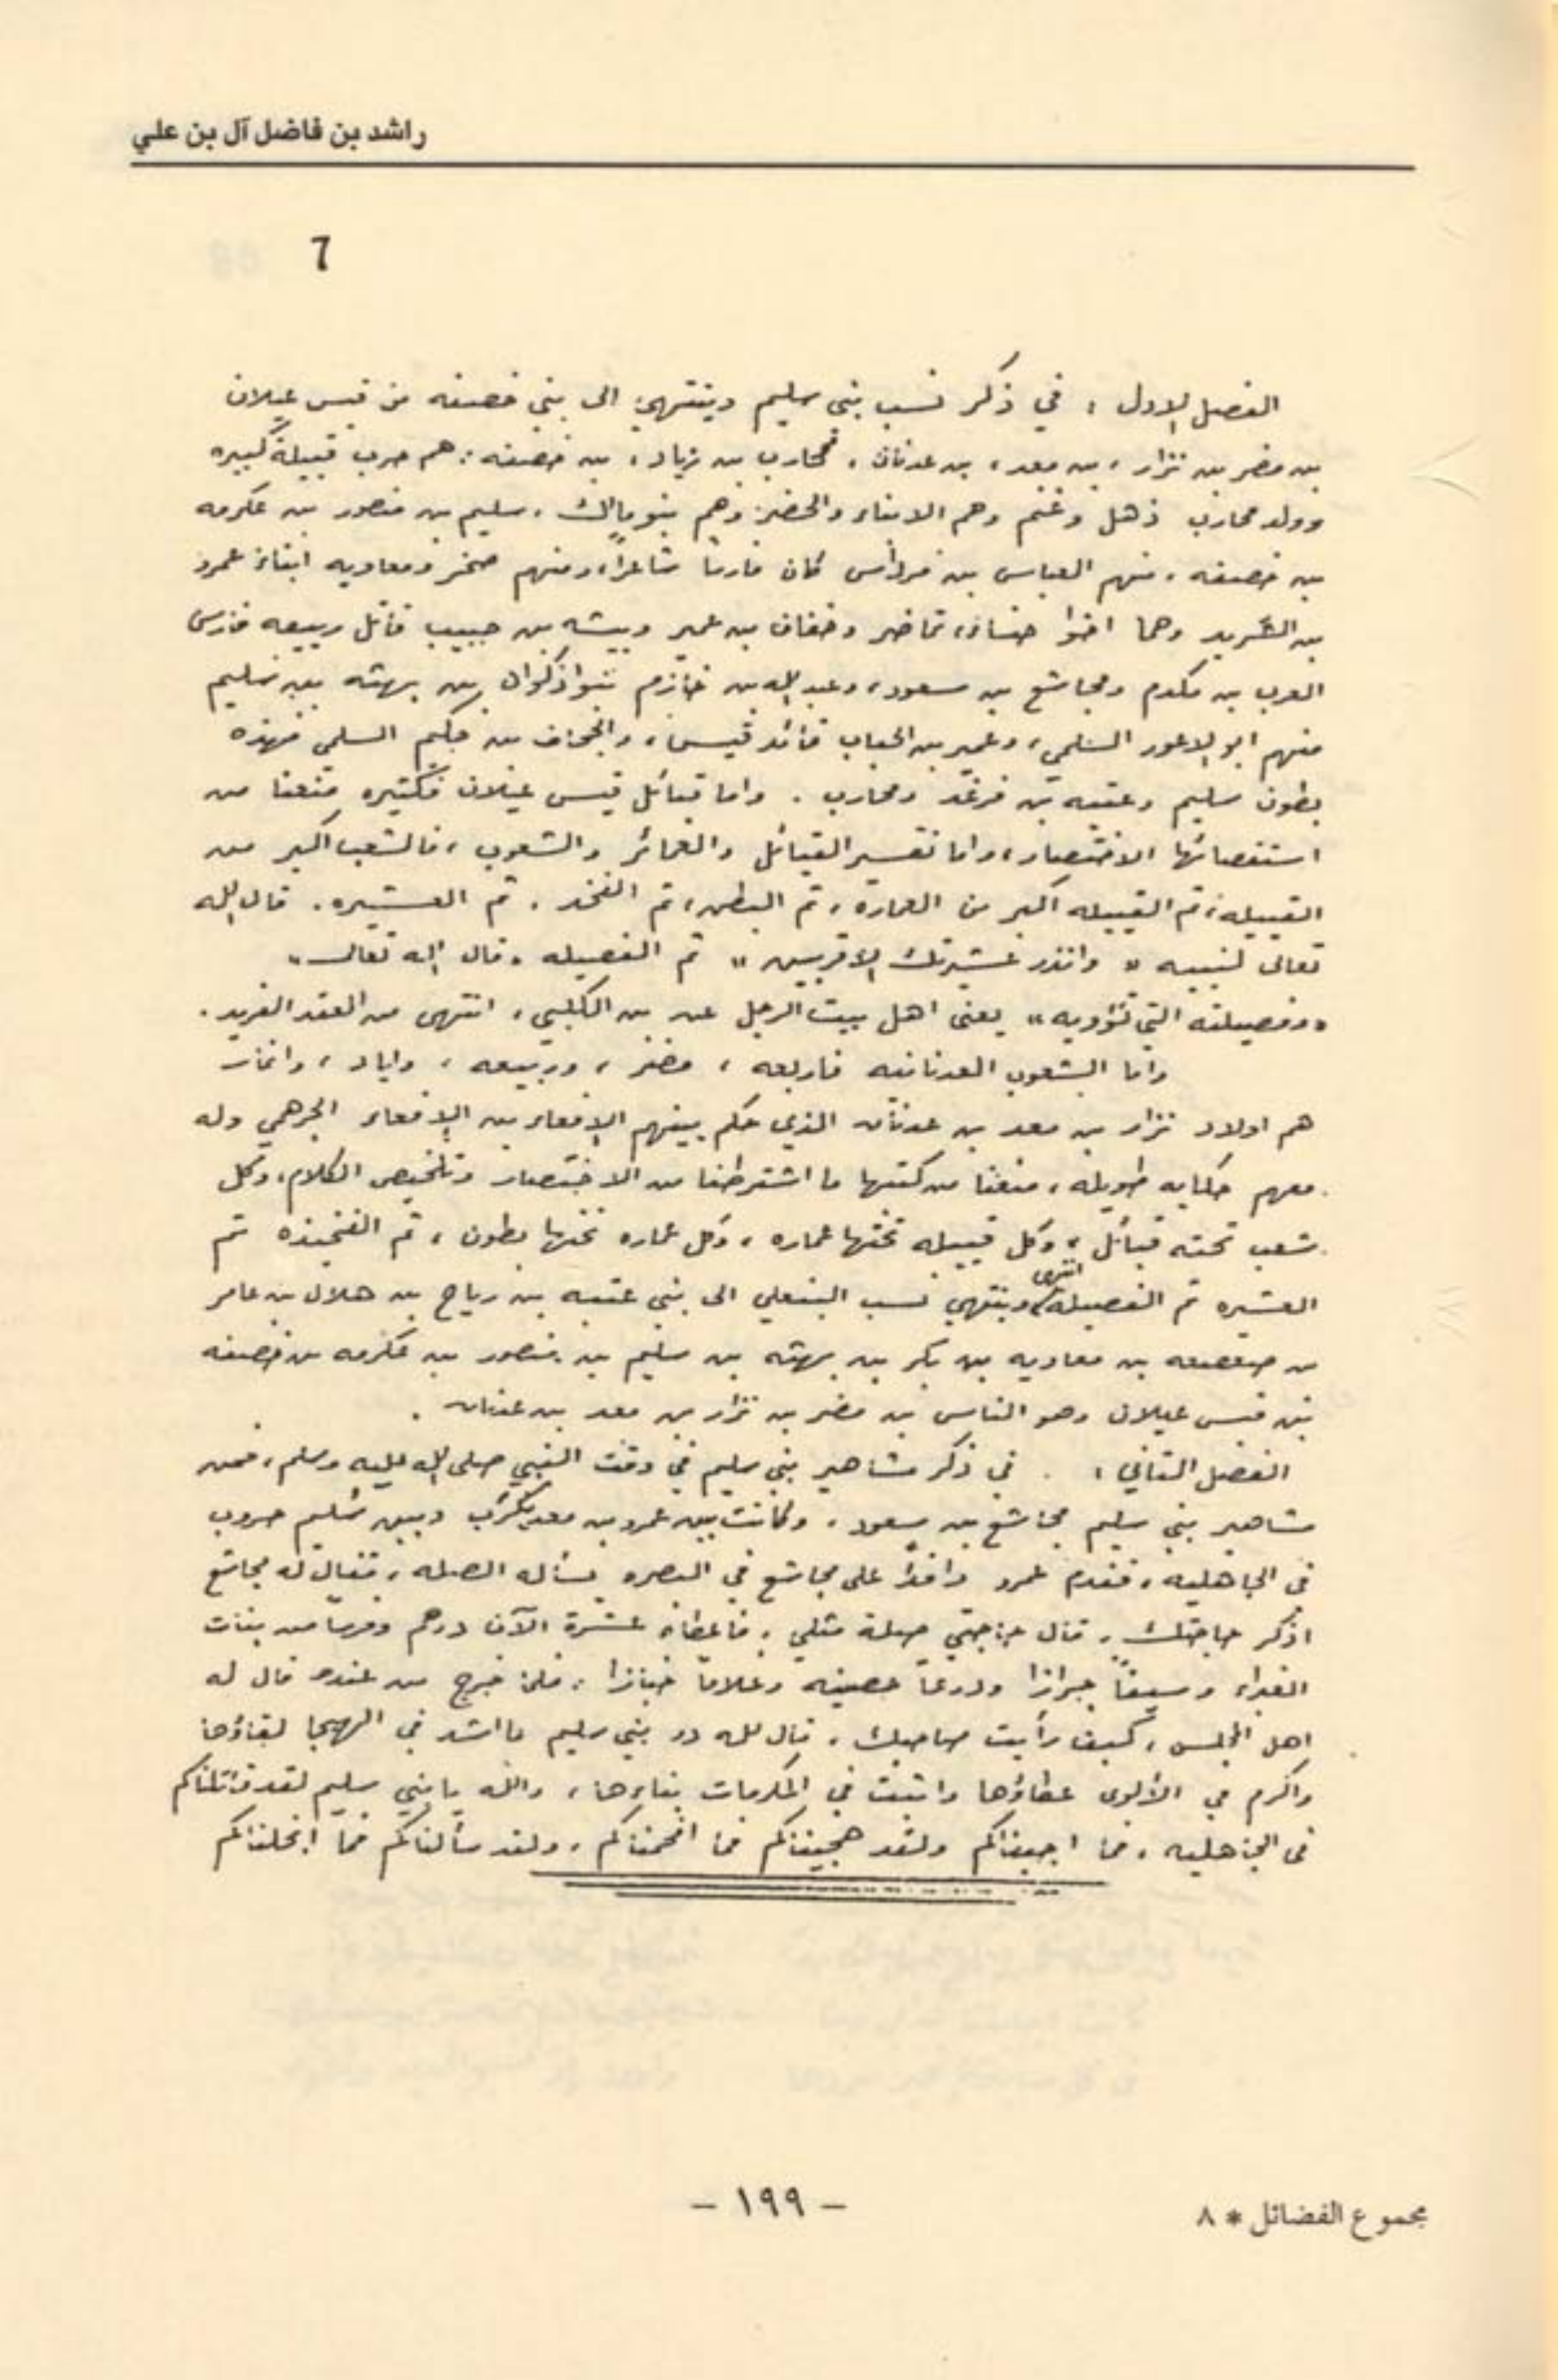 راشد بن فاضل آل بن علي
٦
الفصل الاول : في ذكر نسب بني سليم وينتهي الى بني خصفه من قيس عيلان
بن مضر بن نزار ، بن معد ، بن عدنان ، محارب بن زياد ، بن خصفه : هم حرب قبيلة كبيره
وولد محارب ذهل وغنم وهم الابناء والخضر وهم بنو مالك ، سليم بن منصور بن عكرمه
بن خصفه ، منهم العباس بن مرداس كان فارسا شاعرا، ومنهم صخر ومعاويه ابناء عمرو
بن الشريد وهما اخوا خنساء، تماضر وخفاف بن عمير وبيشه بن حبيب قاتل ربيعه فارس
العرب بن مكدم ومجاشع بن مسعود ، وعبد الله بن خازم بنوا ذكوان بن بهته بن سليم
منهم ابو الاعور السلمي ، وعمير بن الحباب قائد قيس ، والجحاف بن حكيم السلمي فهذه
بطون سليم وعتبه بن فرقد ومحارب . واما قبائل قيس عيلان فكثيره منعنا من
استقصائها الاختصار ، واما تفسير القبائل والعمائر والشعوب ، فالشعب اكبر من
القبيله ، ثم القبيله اكبر من العمارة ، ثم البطن ، ثم الفخذ . ثم العشيره . قال الله
تعالى لنبيه « وانذر عشيرتك الاقربين » ثم الفصيله ، قال الله تعالى »
« وفصيلته التي تؤويه » يعنى اهل بيت الرجل عن بن الكلبي ، انتهى من العقد الفريد .
واما الشعوب العدنانيه فاربعه ، مضر ، وربيعه ، واياد ، وانمار
هم اولاد نزار بن معد بن عدنان الذي حكم بينهم الافعاء بن الافعاء الجرهمي وله
معهم حكايه طويله ، منعنا من كتبها ما اشترطنا من الاختصار وتلخيص الكلام، وكل
شعب تحته قبائل ، وكل قبيله تحتها عماره ، وكل عماره تحتها بطون ، ثم الفخيذه ثم
العشيره ثم الفصيله انتهى وينتهي نسب البنعلي الى بني عتبه بن رياح بن هلال بن عامر
بن صعصعه بن معاويه بن بكر بن بهته بن سليم بن منصور بن عكرمه بن خصفه
بن قيس عيلان وهو الناس بن مضر بن نزار بن معد بن عدنان .
الفصل الثاني : . في ذكر مشاهير بني سليم في وقت النبي صلى الله عليه وسلم ، فمن
مشاهير بني سليم مجاشع بن مسعود ، وكانت بين عمرو بن معديكرب وبين سليم حروب
في الجاهليه ، فقدم عمرو وافدا على مجاشع في البصره يسأله الصله ، فقال له مجاشع
اذكر حاجتك ، قال حاجتي صلة مثلي ، فاعطاه عشرة الآف درهم وفرسا من بنات
الغبراء وسيفاً جرازا ودرعاً حصينه وغلاما خبازا ، فلما خرج من عنده قال له
اهل المجلس ، كيف رأيت صاحبك ، قال لله در بني سليم ما اشد في الهيجا لقاؤها
واكرم في الألوى عطاؤها واثبت في المكرمات بناءها ، والله يا بني سليم لقد قاتلناكم
في الجاهليه ، فما اجبناكم ولقد هجيناكم فما افحمناكم ، ولقد سألناكم فما ابخلناكم
– ١٩٩ –
مجموع الفضائل * ٨